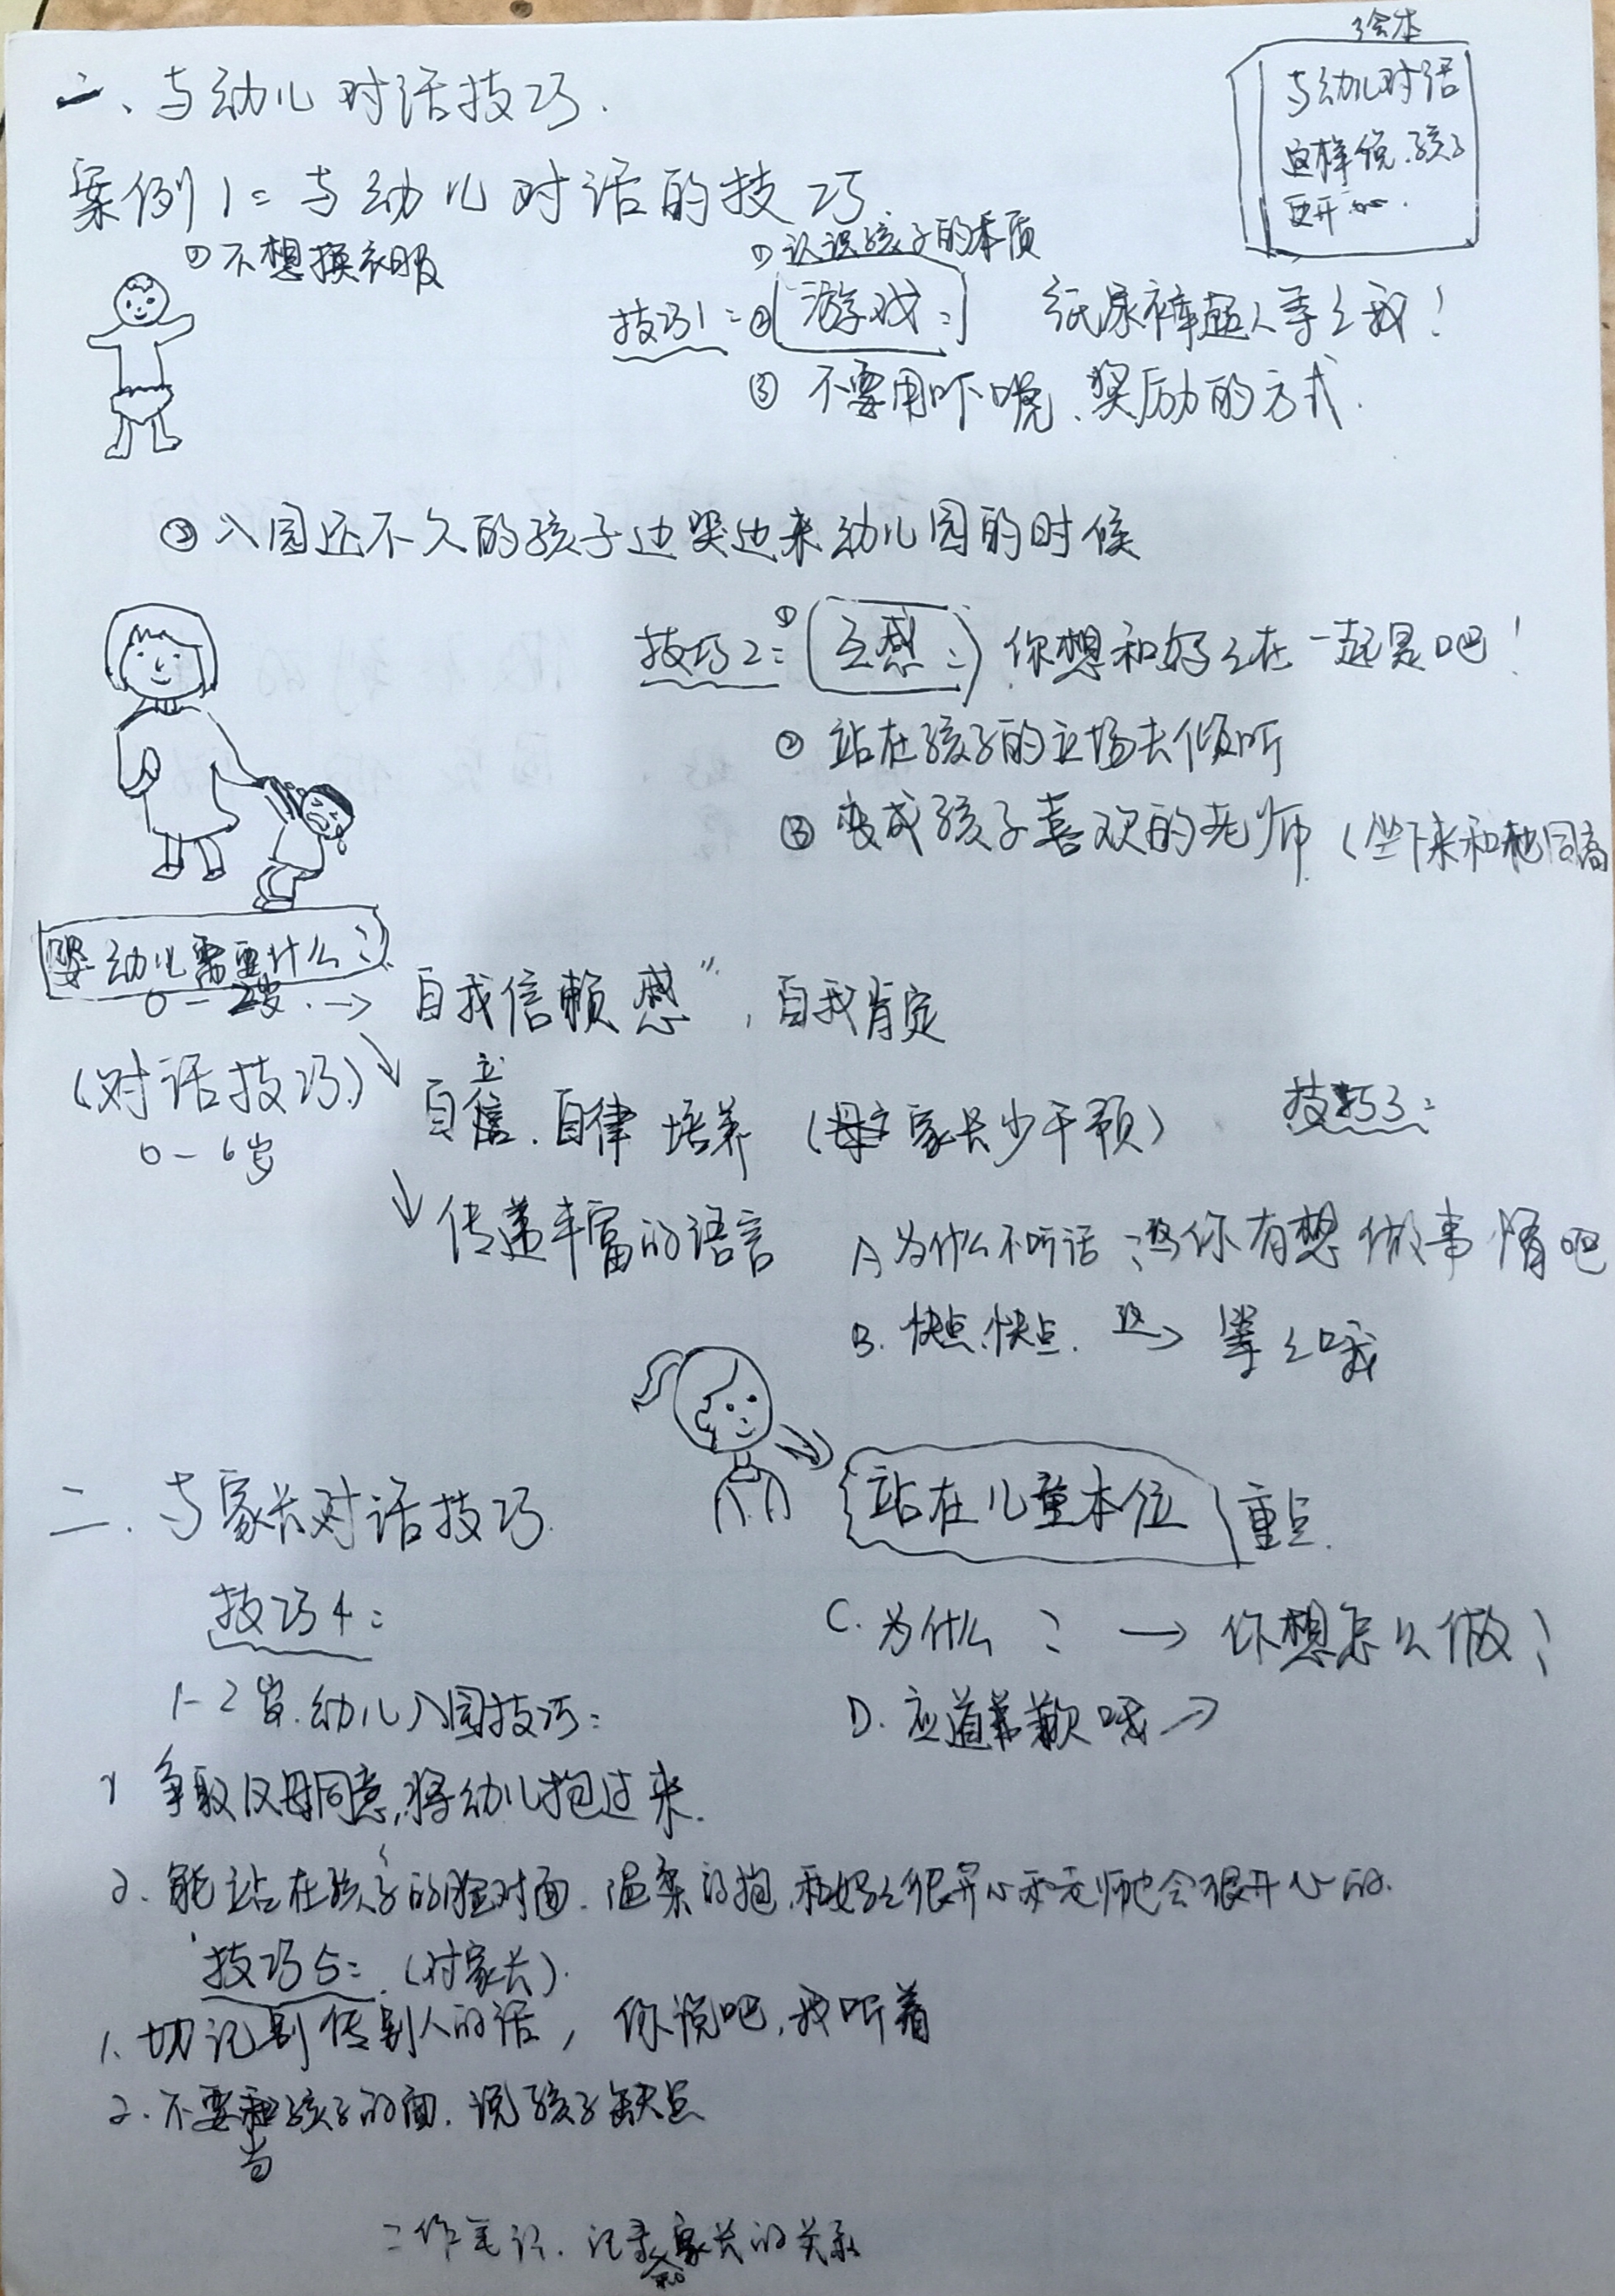 绘本
与幼儿对话
这样说.孩子
更开心.
一、与幼儿对话技巧.
案例1:与幼儿对话的技巧
①不想换衣服
①认识孩子的本质
技巧1:②游戏: 纸尿裤超人等之我!
③不要用吓唬、奖励的方式.
②入园还不久的孩子边哭边来幼儿园的时候
技巧2:①互感: 你想和妈之在一起是吧!
②站在孩子的立场去倾听
③变成孩子喜欢的老师(坐下来和他同高
婴幼儿需要什么?
0-2岁.→自我信赖感",自我肯定
(对话技巧)↓自立信.自律培养(家长少干预)
0-6岁
↓传递丰富的语言
技巧3:
A为什么不听话:你有想做事情吧
B.快点,快点. →等之哦
站在儿童本位 重点.
C.为什么?→你想怎么做?
D.应道歉哦→
二.与家长对话技巧.
技巧4:
1-2岁.幼儿入园技巧:
1争取父母同意,将幼儿抱过来.
2.能站在孩子的脸对面.温柔的抱.和妈之很开心和老师也会很开心的.
技巧5:(对家长).
1.切记别传别人的话,你说吧,我听着
2.不要当孩子的面.说孩子缺点
工作笔记.记录和家长的关系